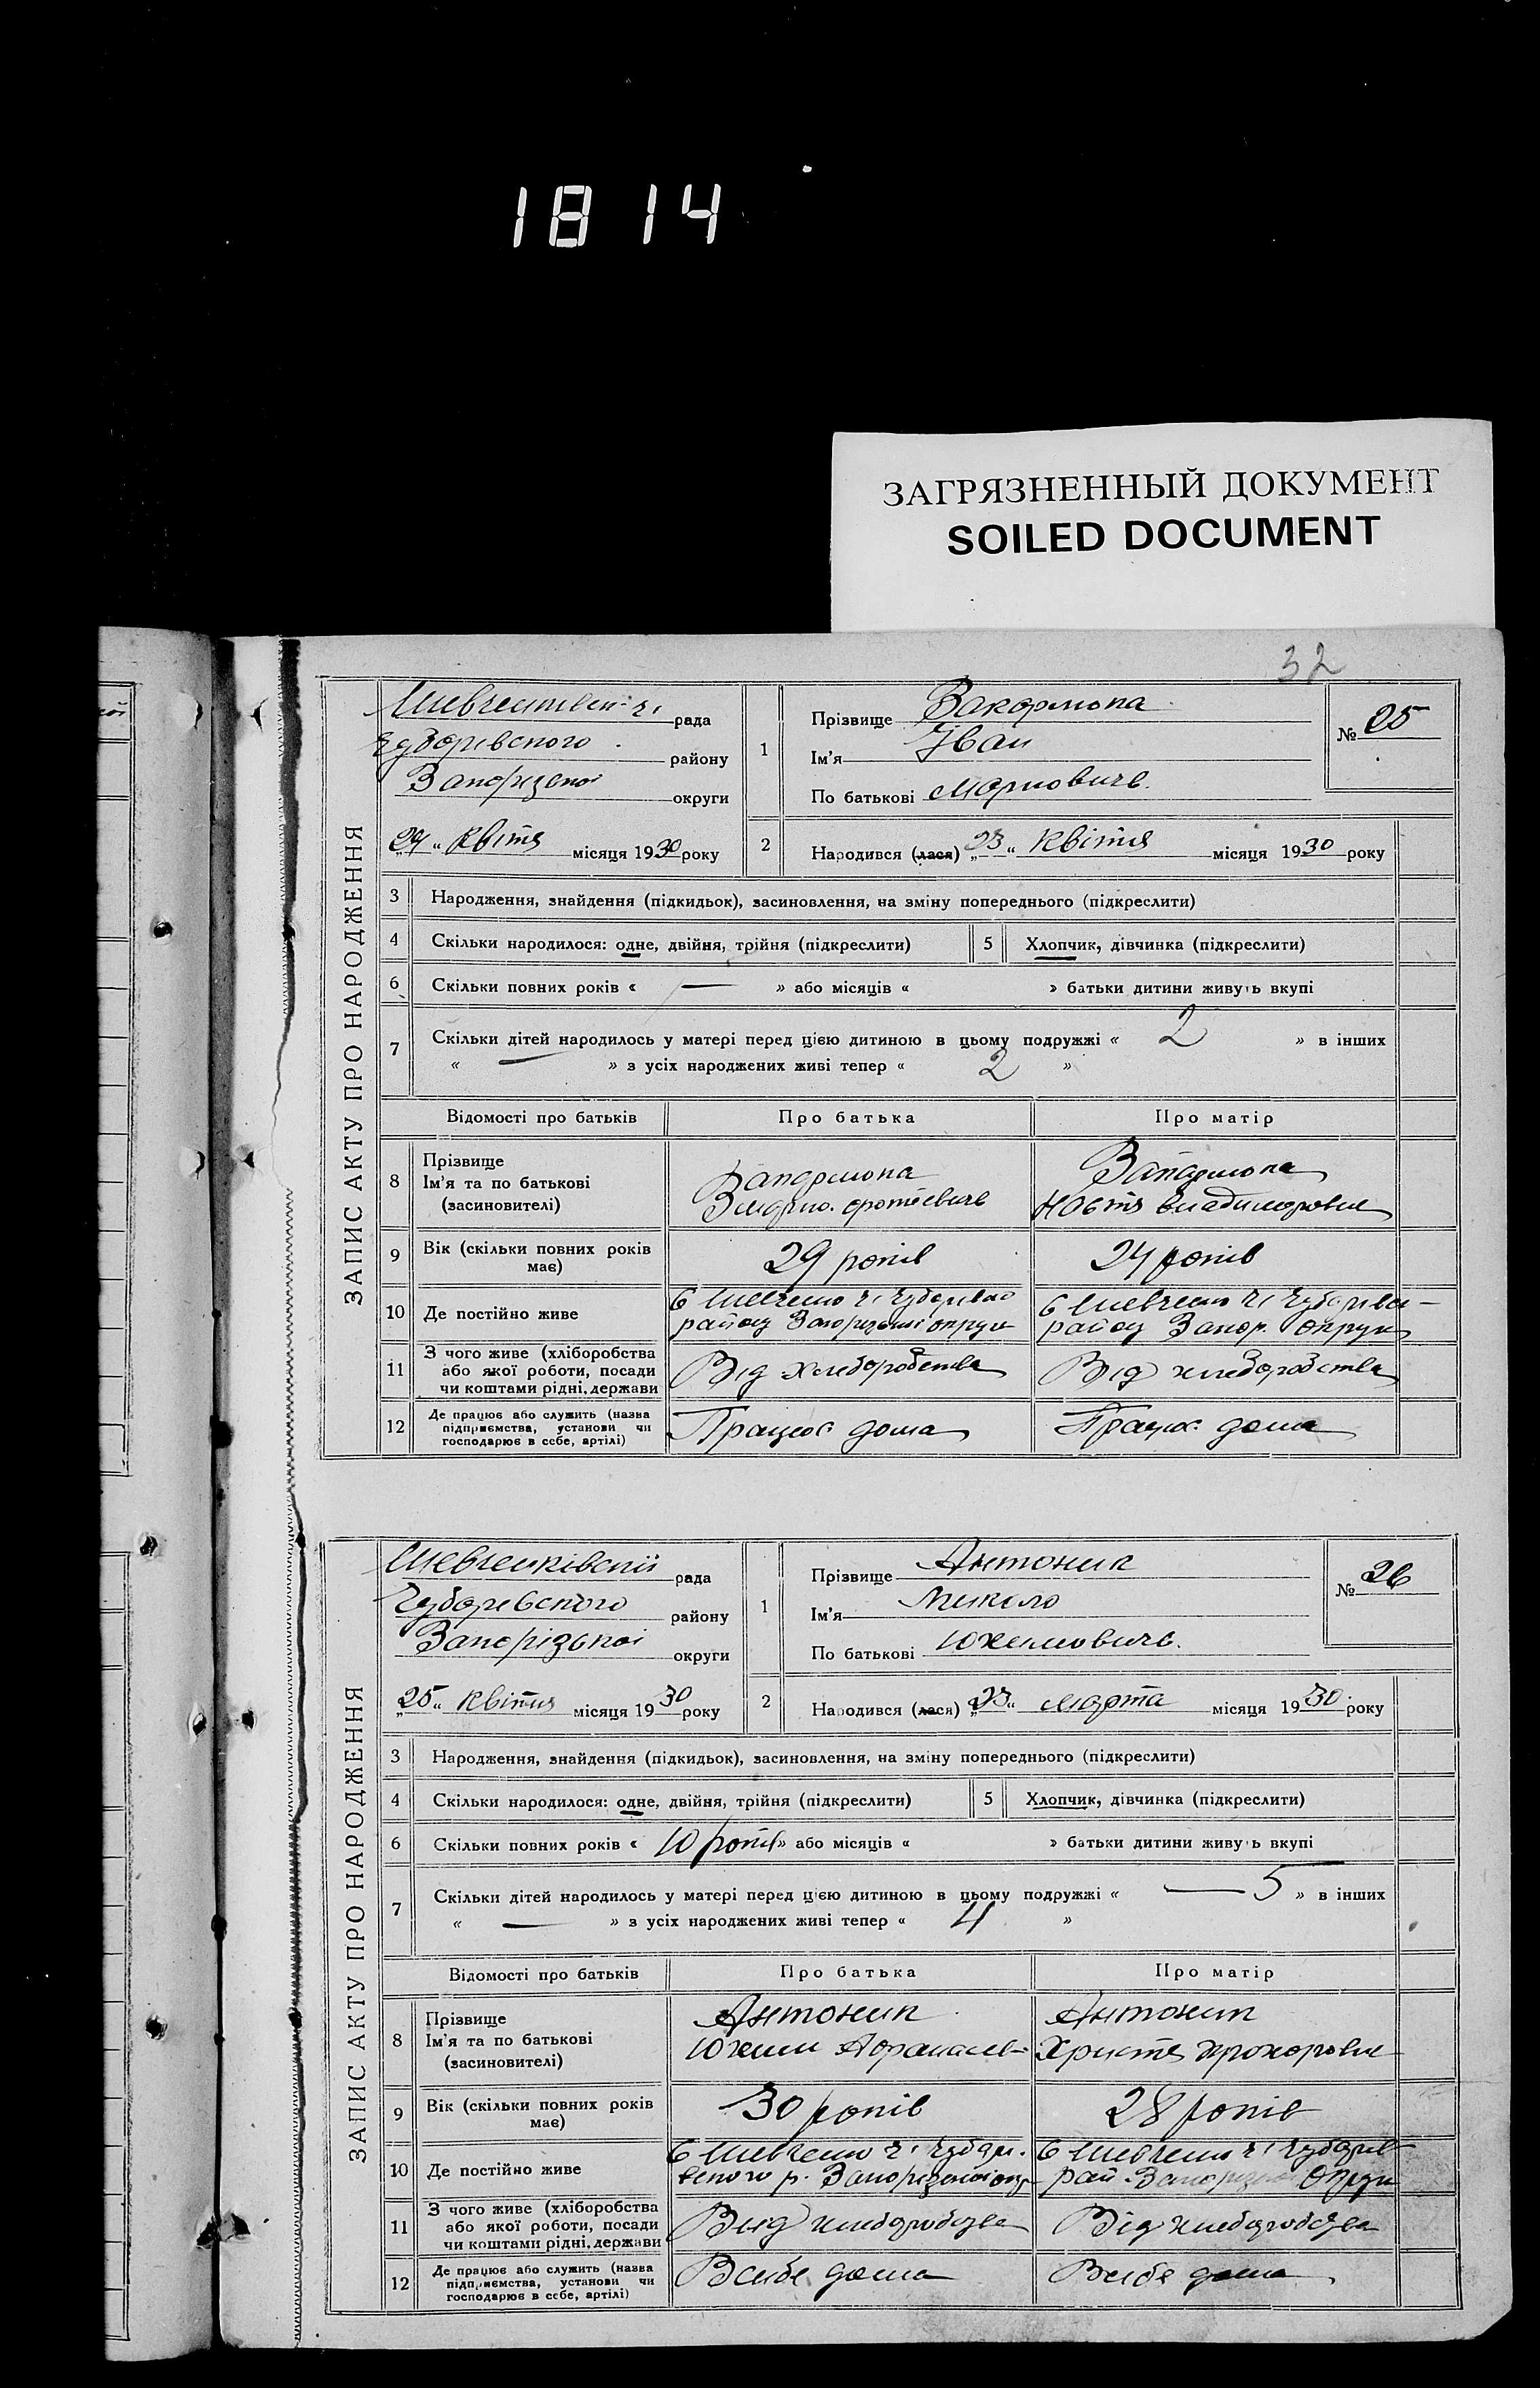 1814
ЗАГРЯЗНЕННЫЙ ДОКУМЕНТ
SOILED DOCUMENT
32
ЗАПИС АКТУ ПРО НАРОДЖЕННЯ
рада
району
округи
„24“ Квітя місяця 1930 року
1
Прізвище
Ім'я Іван
По батькові Маркович
№ 25
2
Народився (лася) „23“ Квітня місяця 1930 року
3 Народження, знайдення (підкидьок), засиновлення, на зміну попереднього (підкреслити)
4 Скільки народилося: одне, двійня, трійня (підкреслити)
5 Хлопчик, дівчинка (підкреслити)
6 Скільки повних років « — » або місяців « » батьки дитини живуть вкупі
7 Скільки дітей народилось у матері перед цією дитиною в цьому подружжі « 2 » в інших
« — » з усіх народжених живі тепер « 2 »
Відомості про батьків
Про батька
Про матір
8 Прізвище
Ім'я та по батькові
(засиновителі)
9 Вік (скільки повних років має)
29 років
24 років
10 Де постійно живе
11 З чого живе (хліборобства
або якої роботи, посади
чи коштами рідні, держави
Від хліборобства
Від хліборобства
12 Де працює або служить (назва
підприємства, установи чи
господарює в себе, артілі)
Працює дома
Працює дома
ЗАПИС АКТУ ПРО НАРОДЖЕННЯ
Шевченківскії рада
Чубарівского району
Запорізькоі округи
„25“ Квітня місяця 1930 року
1
Прізвище Антоник
Ім'я Микола
По батькові Юхимович
№ 26
2
Народився (лася) „23“ Марта місяця 1930 року
3 Народження, знайдення (підкидьок), засиновлення, на зміну попереднього (підкреслити)
4 Скільки народилося: одне, двійня, трійня (підкреслити)
5 Хлопчик, дівчинка (підкреслити)
6 Скільки повних років « 10 років » або місяців « » батьки дитини живуть вкупі
7 Скільки дітей народилось у матері перед цією дитиною в цьому подружжі « — 5 » в інших
« — » з усіх народжених живі тепер « 4 »
Відомості про батьків
Про батька
Про матір
8 Прізвище
Ім'я та по батькові
(засиновителі)
Антоник
Юхим Афанасев
Антоник
Христя Прохоровна
9 Вік (скільки повних років має)
30 років
28 років
10 Де постійно живе
11 З чого живе (хліборобства
або якої роботи, посади
чи коштами рідні, держави
Від хліборобства
12 Де працює або служить (назва
підприємства, установи чи
господарює в себе, артілі)
В себе дома
В себе дома